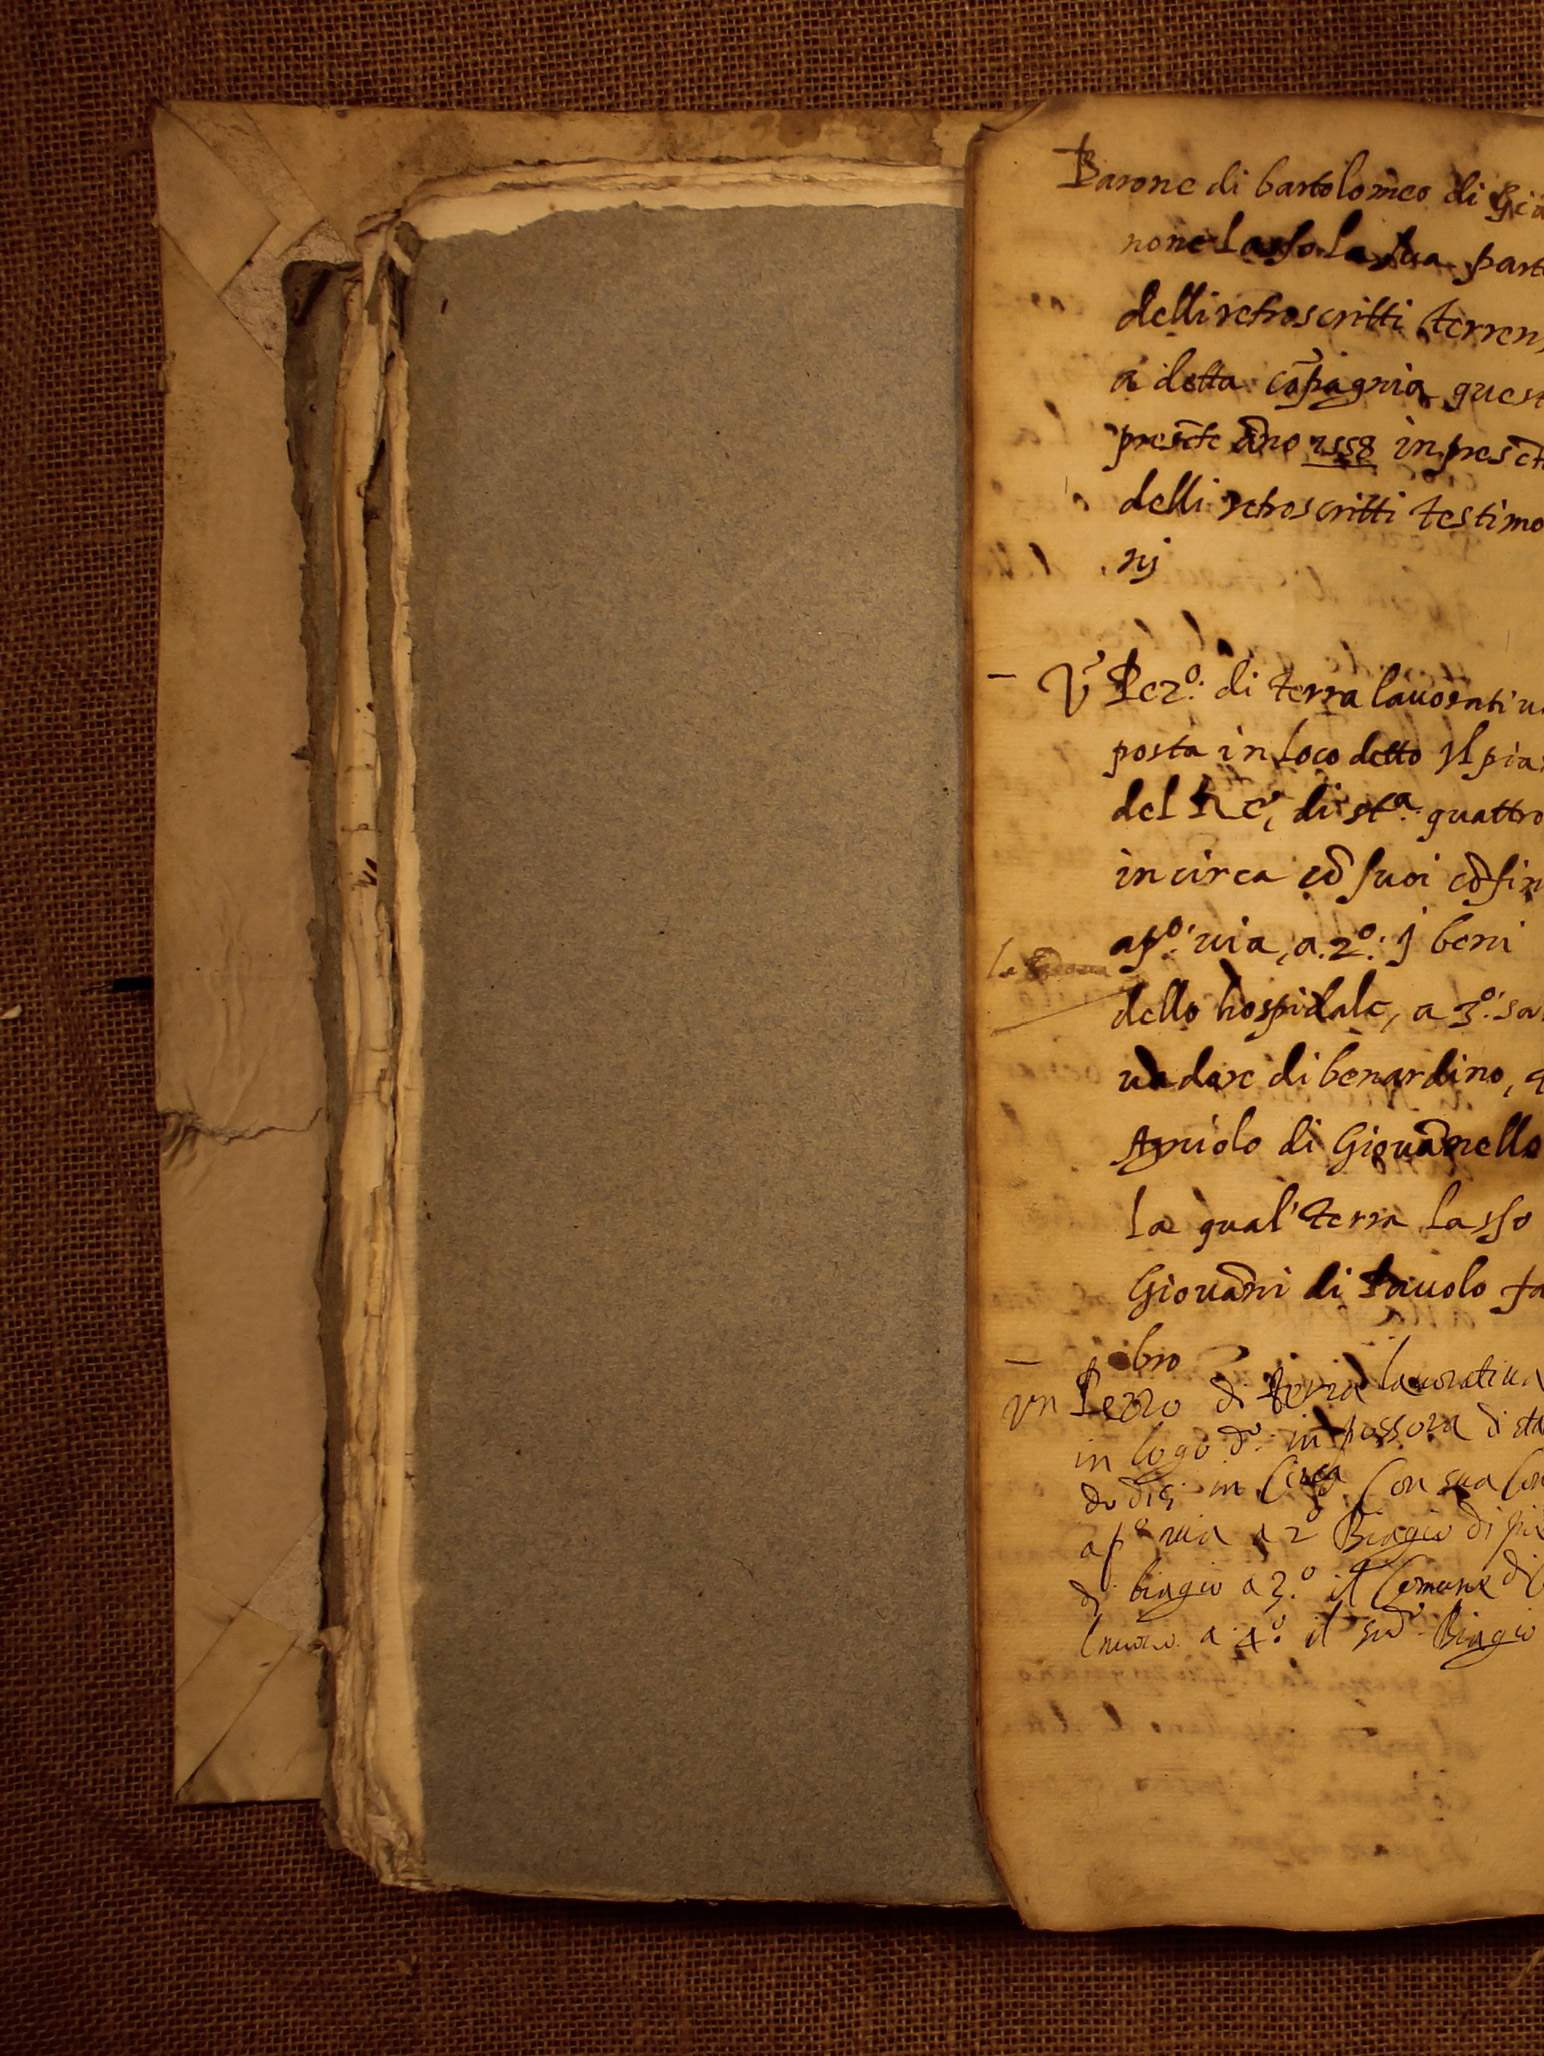 Barone di bartolomeo di Gia
none lasso la sua parte
delli retroscritti terren
a detta cõpagnia quest
presẽte ãno 1558 in presẽt
delli retroscritti testimo
nj
Ũ Pezº. di terra lauoratiua
posta in loco detto Il pia
del Re, di stª. quattro
in circa cõ suoi cõfin
apº. uia, a. 2º: J beni
dello hospidale, a 3º: sa
uadore di benardino, 4
Agniolo di Giovãnello
la qual' terra lasso
Giouãni di Pauolo fa
bro
vn Pezzo di terra lauoratiua
in logo dº. in di sta
dodici in circa Con sua Con
a pº uia a 2º Biagio di pi
di biagio a 3.º il Comune di C
a 4º. il sudº. Biagio